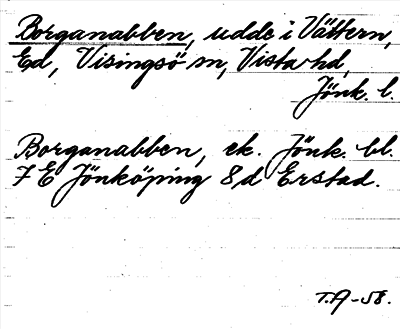 Borganabben, udde i Vättern,
Ed, Visingsö sn, Vista hd,
Jönk. l.
Borganabben, ek. Jönk. bl.
7 E Jönköping 8d Erstad.
T.A-58.